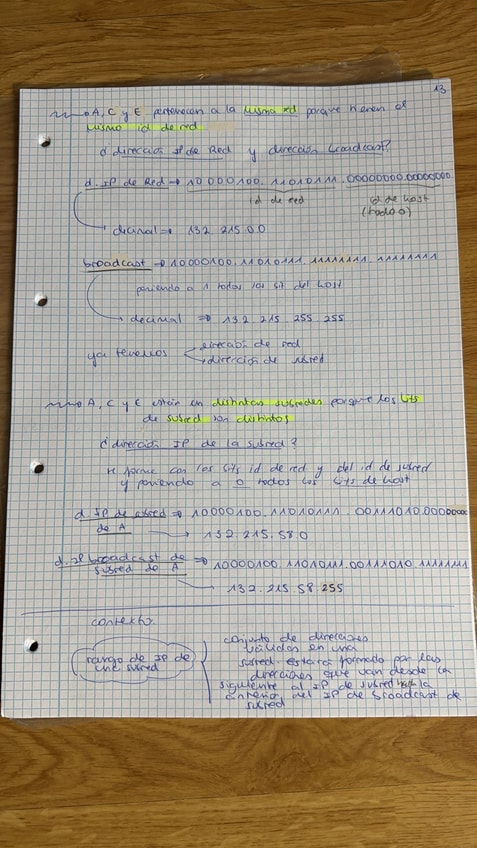 13
A, C y E pertenecen a la misma red porque tienen el
mismo id de red
¿dirección IP de Red y dirección broadcast?
d. IP de Red → 10000100. 11010111 .00000000.00000000
id de red id de host
(todo 0)
decimal → 132 215 0 0
broadcast → 10000100. 11010111. 11111111 . 11111111
poniendo a 1 todos los bit del host
decimal → 132 . 215 . 255 . 255
ya tenemos dirección de red
dirección de subred
A, C y E están en distintas subredes porque los bits
de subred son distintos
¿dirección IP de la subred?
se forma con los bits id de red y del id de subred
y poniendo a 0 todos los bits de host
d. IP de subred → 10000100. 11010111. .00111010.00000000
de A → 132.215.58.0
d. IP broadcast de → 10000100. 11010111.00111010.11111111
subred de A → 132.215 58.255
contexto.
rango de IP de
una subred
conjunto de direcciones
válidas en una
subred. estará formado por las
direcciones que van desde la
siguiente al IP de subred hasta la
anterior del IP de broadcast de
subred